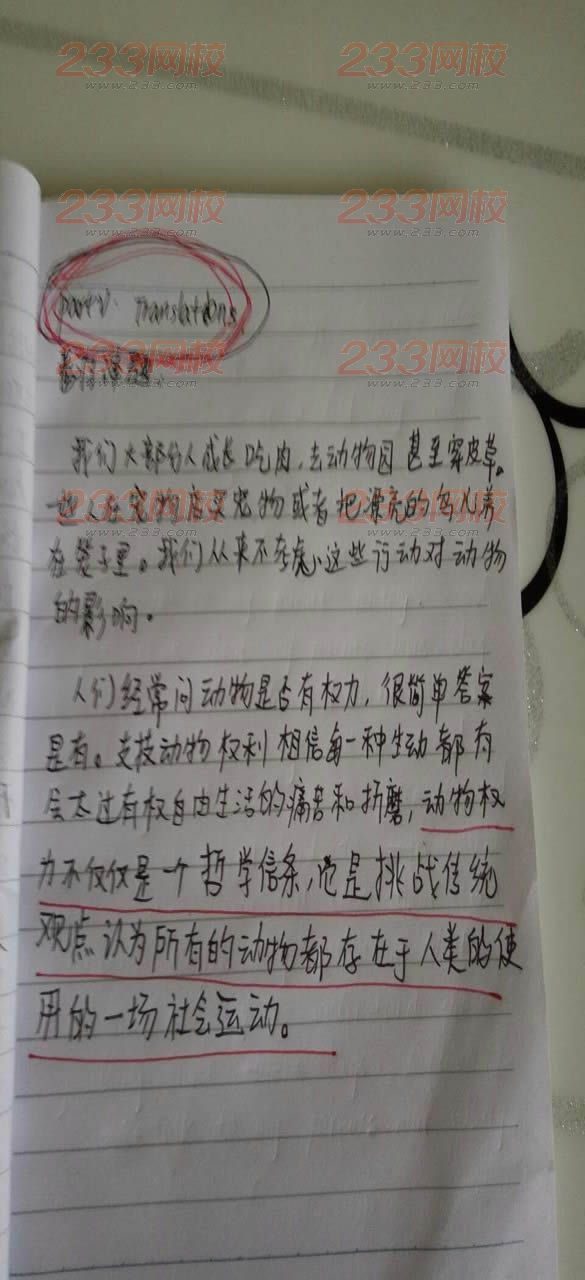 233网校 233网校
www.233.com www.233.com
233网校 233网校
www.233.com www.233.com
Translations
233网校 233网校
www.233.com www.233.com
我们大部份人成长吃肉,去动物园甚至穿皮草。
也人在宠物店买宠物或者把漂亮的鸟儿养
在笼子里。我们从来不考虑这些行动对动物
的影响。
人们经常问动物是否有权力,很简单答案
是有。支技动物权利相信每一种生动都有
会太过有权自由生活的痛苦和折磨,动物权
力不仅仅是一个哲学信条,它是挑战传统
观点认为所有的动物都存在于人类的使
用的一场社会运动。